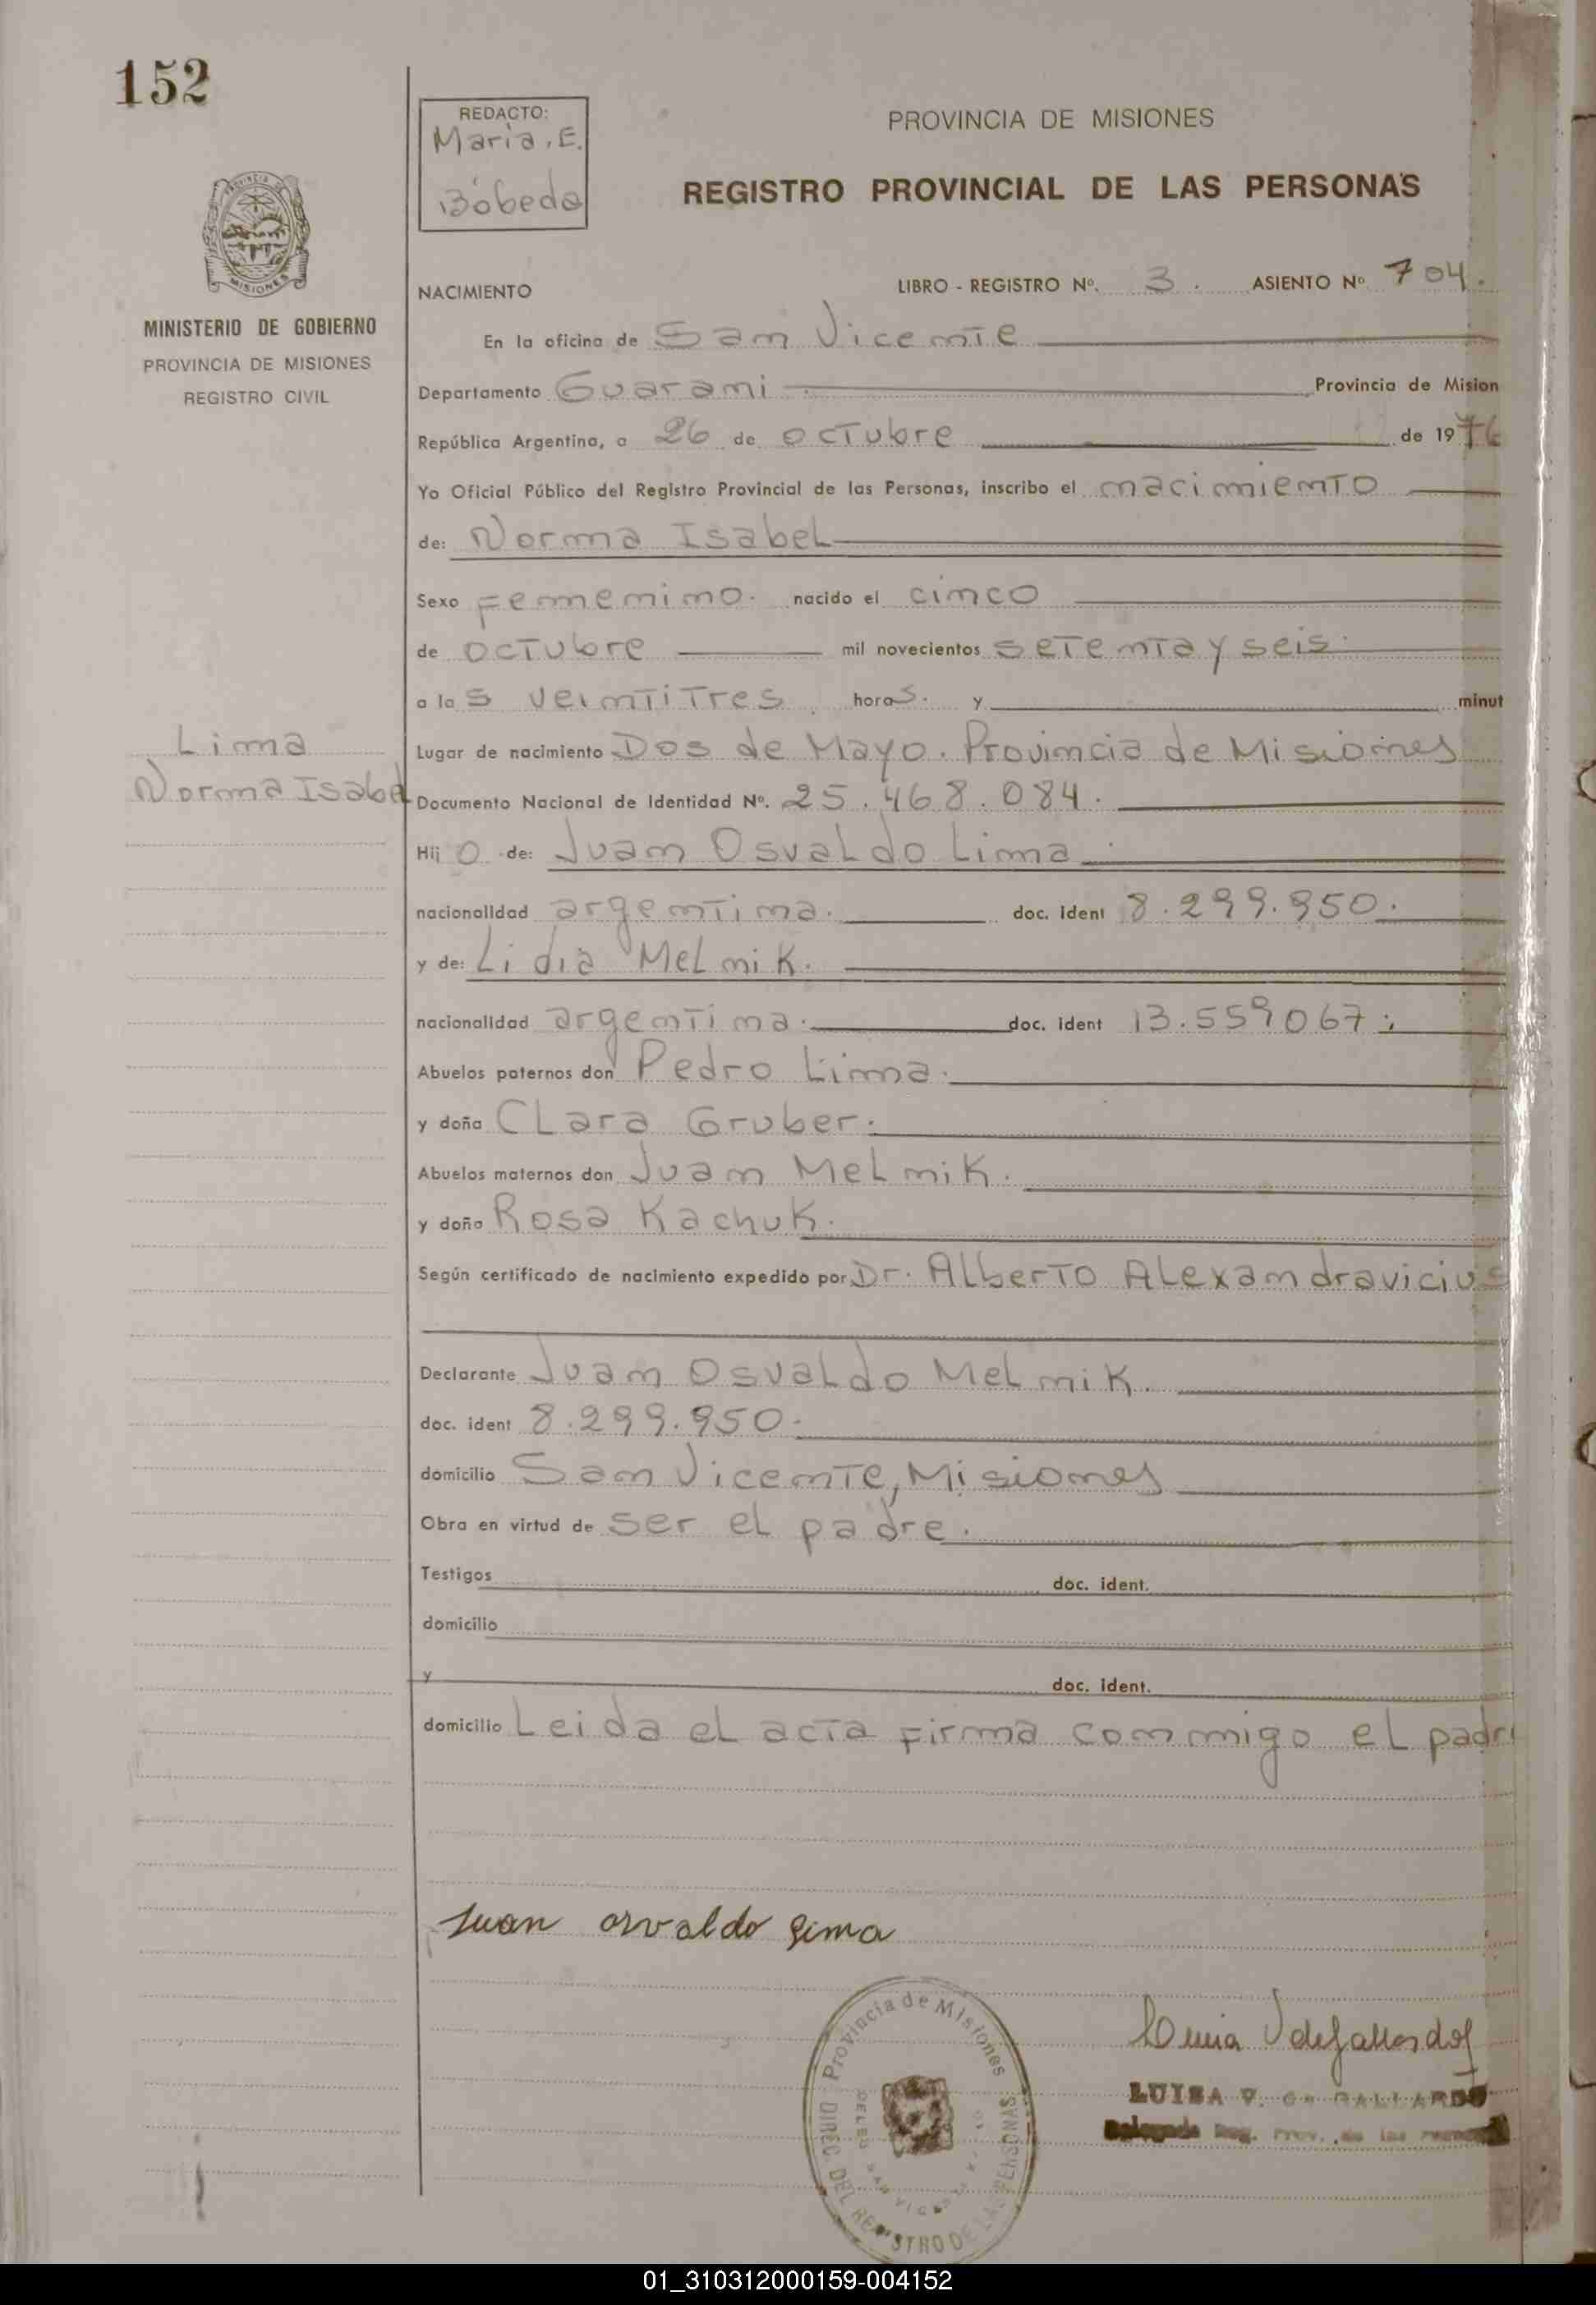 152
REDACTO:
Maria. E.
Bóbeda
PROVINCIA DE MISIONES
REGISTRO PROVINCIAL DE LAS PERSONAS
PROVINCIA DE
MISIONES
MINISTERIO DE GOBIERNO
PROVINCIA DE MISIONES
REGISTRO CIVIL
NACIMIENTO LIBRO - REGISTRO Nº. 3. ASIENTO Nº 704.
En la oficina de San Vicente
Departamento Guarani Provincia de Mision
República Argentina, a 26 de octubre de 1976
Yo Oficial Público del Registro Provincial de las Personas, inscribo el nacimiento
de: Norma Isabel
Sexo Femenino. nacido el cinco
de octubre mil novecientos setenta y seis.
a las veintitres horas. y minut
Lima
Norma Isabel
Lugar de nacimiento Dos de Mayo. Provincia de Misiones
Documento Nacional de Identidad Nº. 25.468.084.
Hijo de: Juan Osvaldo Lima.
nacionalidad argentina. doc. ident 8.299.950.
y de: Lidia Melnik.
nacionalidad argentina. doc. ident 13.559067.
Abuelos paternos don Pedro Lima.
y doña Clara Gruber.
Abuelos maternos don Juan Melnik.
y doña Rosa Kachuk.
Según certificado de nacimiento expedido por Dr. Alberto Alexandravicius
Declarante Juan Osvaldo Melnik.
doc. ident 8.299.950.
domicilio San Vicente, Misiones
Obra en virtud de ser el padre.
Testigos doc. ident.
domicilio
y doc. ident.
domicilio Leida el acta firma conmigo el padre
Juan osvaldo Lima
Provincia de Misiones
DIREC. DEL REGISTRO DE LAS PERSONAS
Luisa V de Gallardo
LUISA V. de GALLARDO
Delegada Reg. Prov. de las
01_310312000159-004152